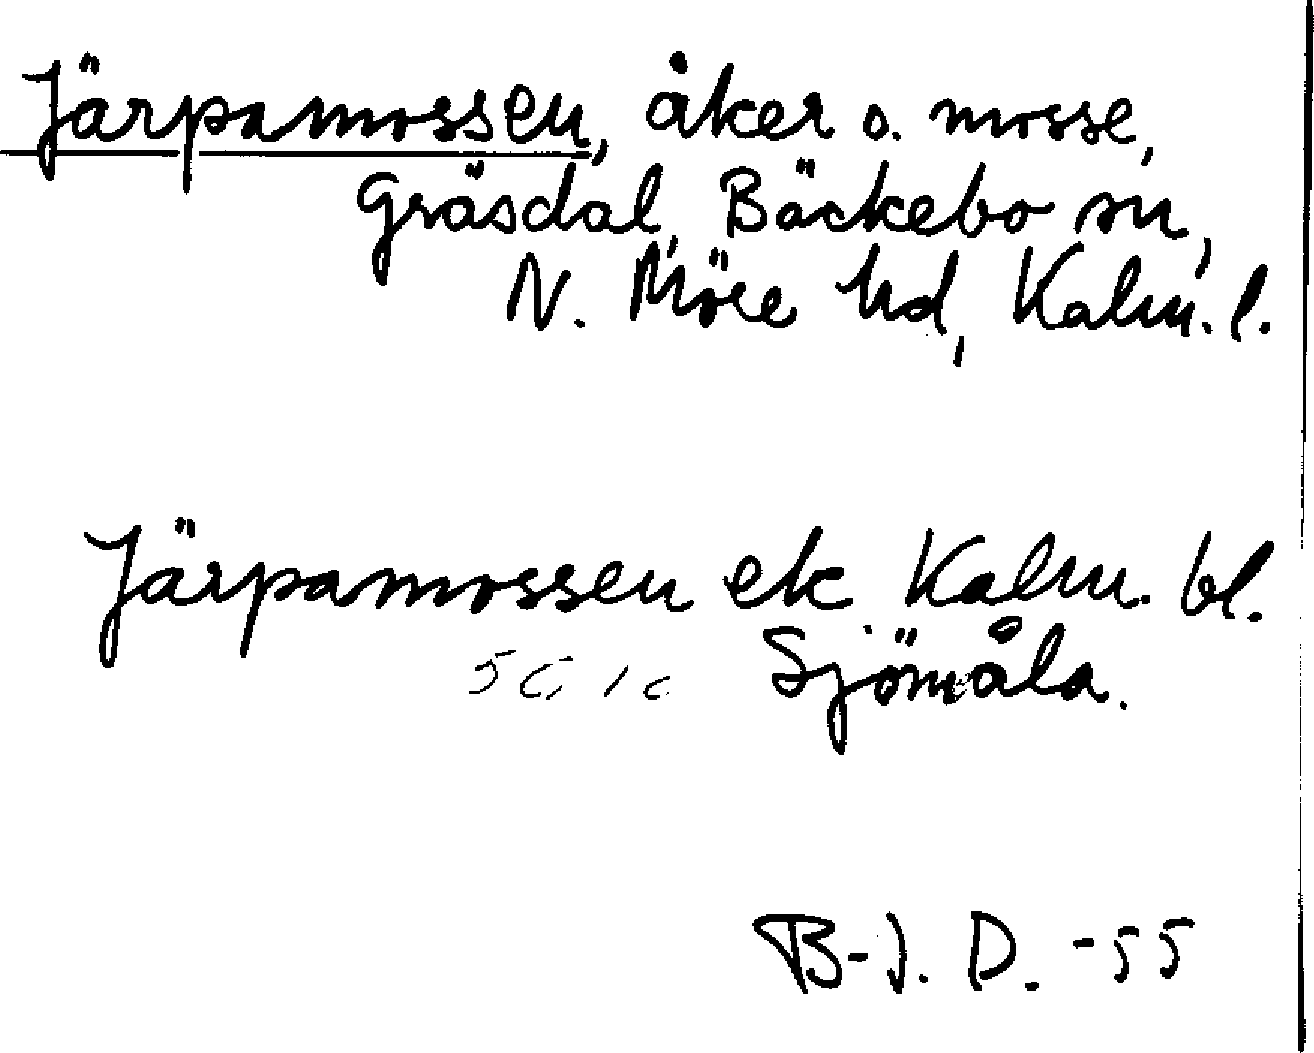 Järpamossen, åker o. mosse,
Gräsdal, Bäckebo sn,
N. Möre hd, Kalm. l.
Järpamossen ek. Kalm. bl.
5G 1c Sjömåla.
B-J. D. -55